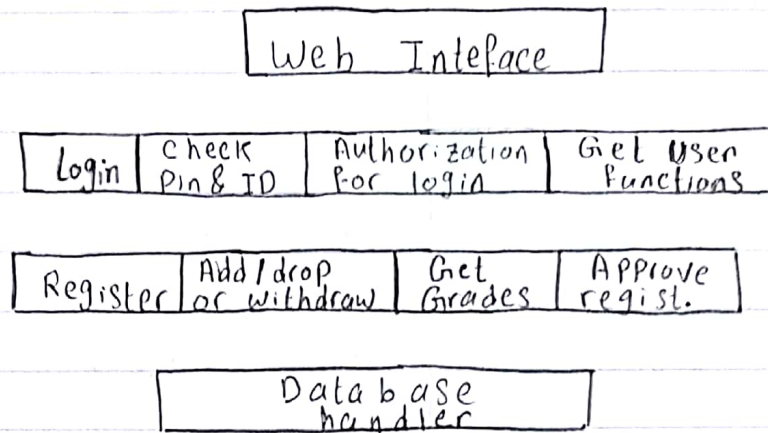 Web Inteface
Login
Check
Pin & ID
Authorization
for login
Get User
functions
Register
Add/drop
or withdraw
Get
Grades
Approve
regist.
Database
handler